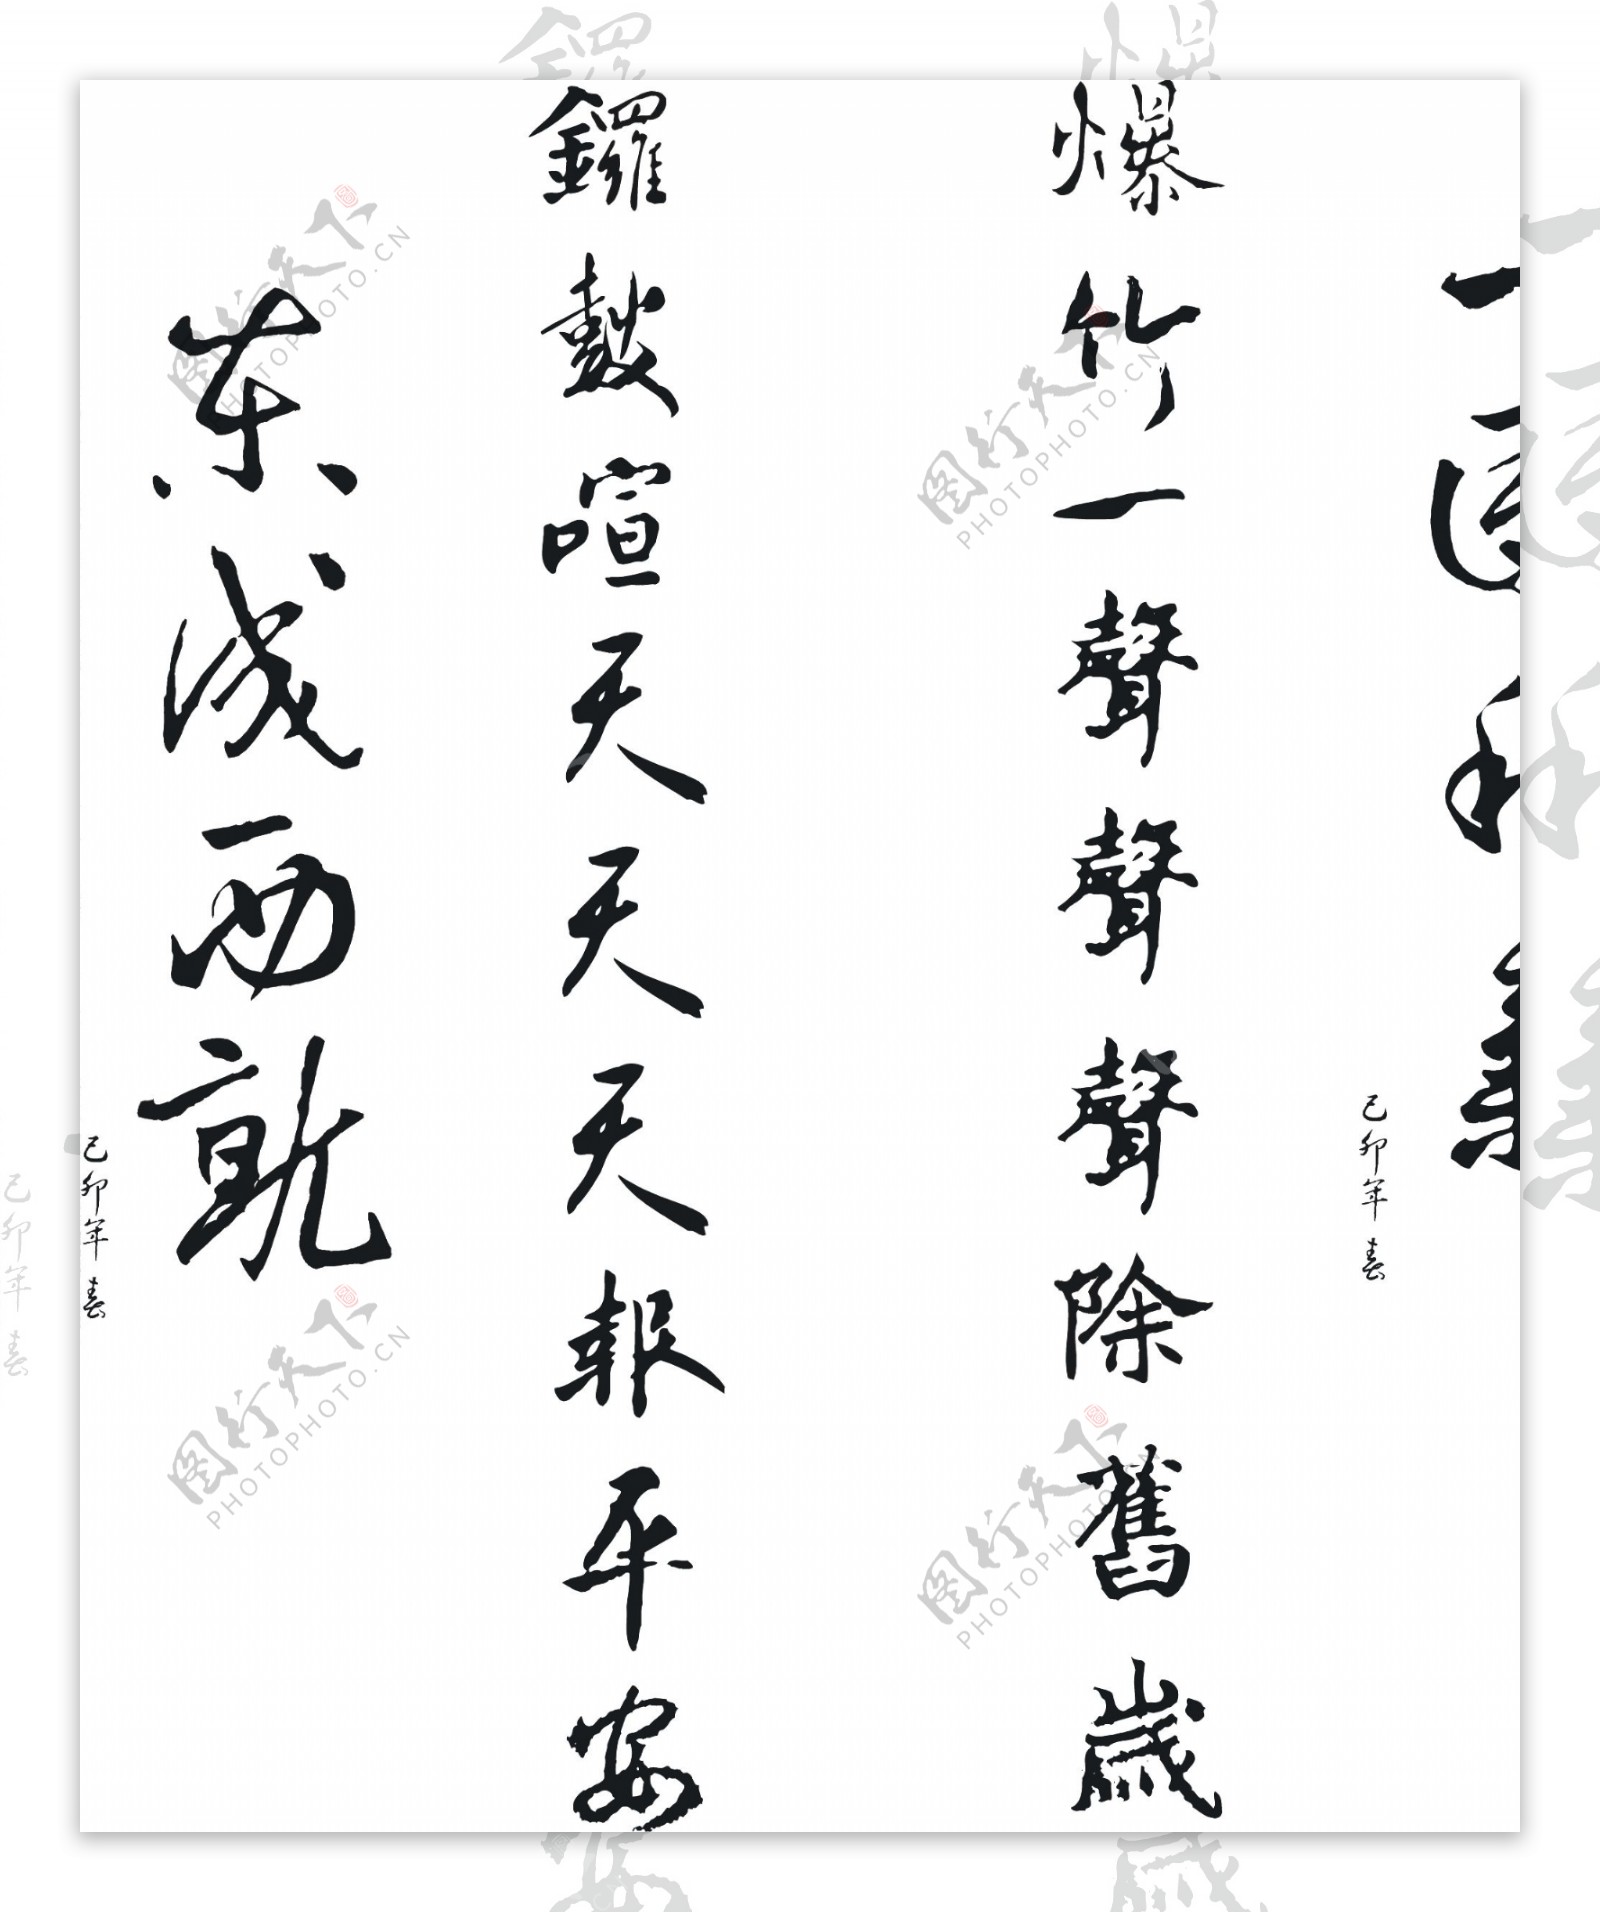 己卯年春
爆竹一聲聲聲除舊歲
鑼鼓喧天天天報平安
东成西就
己卯年春
图行天下
PHOTOPHOTO.CN
图行天下
PHOTOPHOTO.CN
图行天下
PHOTOPHOTO.CN
图行天下
PHOTOPHOTO.CN